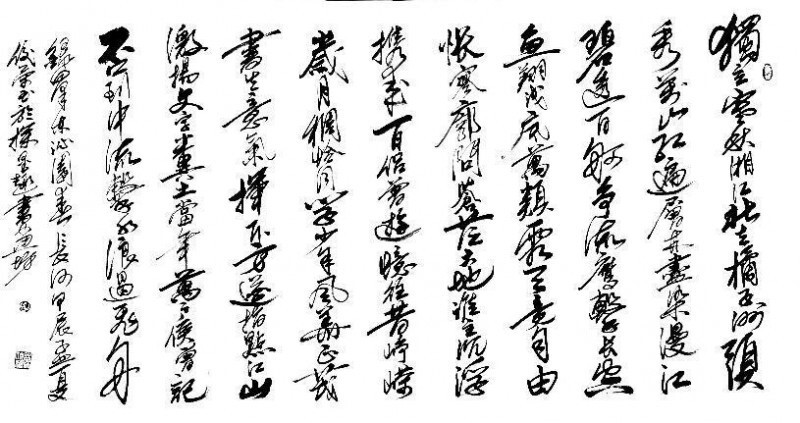 獨立寒秋湘江北去橘子洲頭
看萬山紅遍層林盡染漫江
碧透百舸爭流鷹擊長空
魚翔淺底萬類霜天競自由
悵寥廓問蒼茫大地誰主沉浮
携來百侶曾遊憶往昔崢嶸
歲月稠恰同學少年風華正茂
書生意氣揮斥方遒指點江山
激揚文字糞土當年萬户侯曾記
否到中流擊水浪遏飛舟
錄澤東沁園春長沙甲辰孟夏
書於